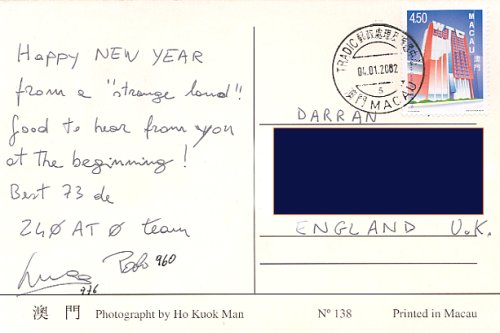 Happy NEW YEAR
from a "strange land"!
Good to hear from you
at the beginning!
Best 73 de
24Ø AT Ø team
960
976
4.50
MACAU 澳門
04.01.2002
5
澳門 MACAU
DARRAN
ENGLAND U.K.
澳 門 Photography by Ho Kuok Man Nº 138 Printed in Macau